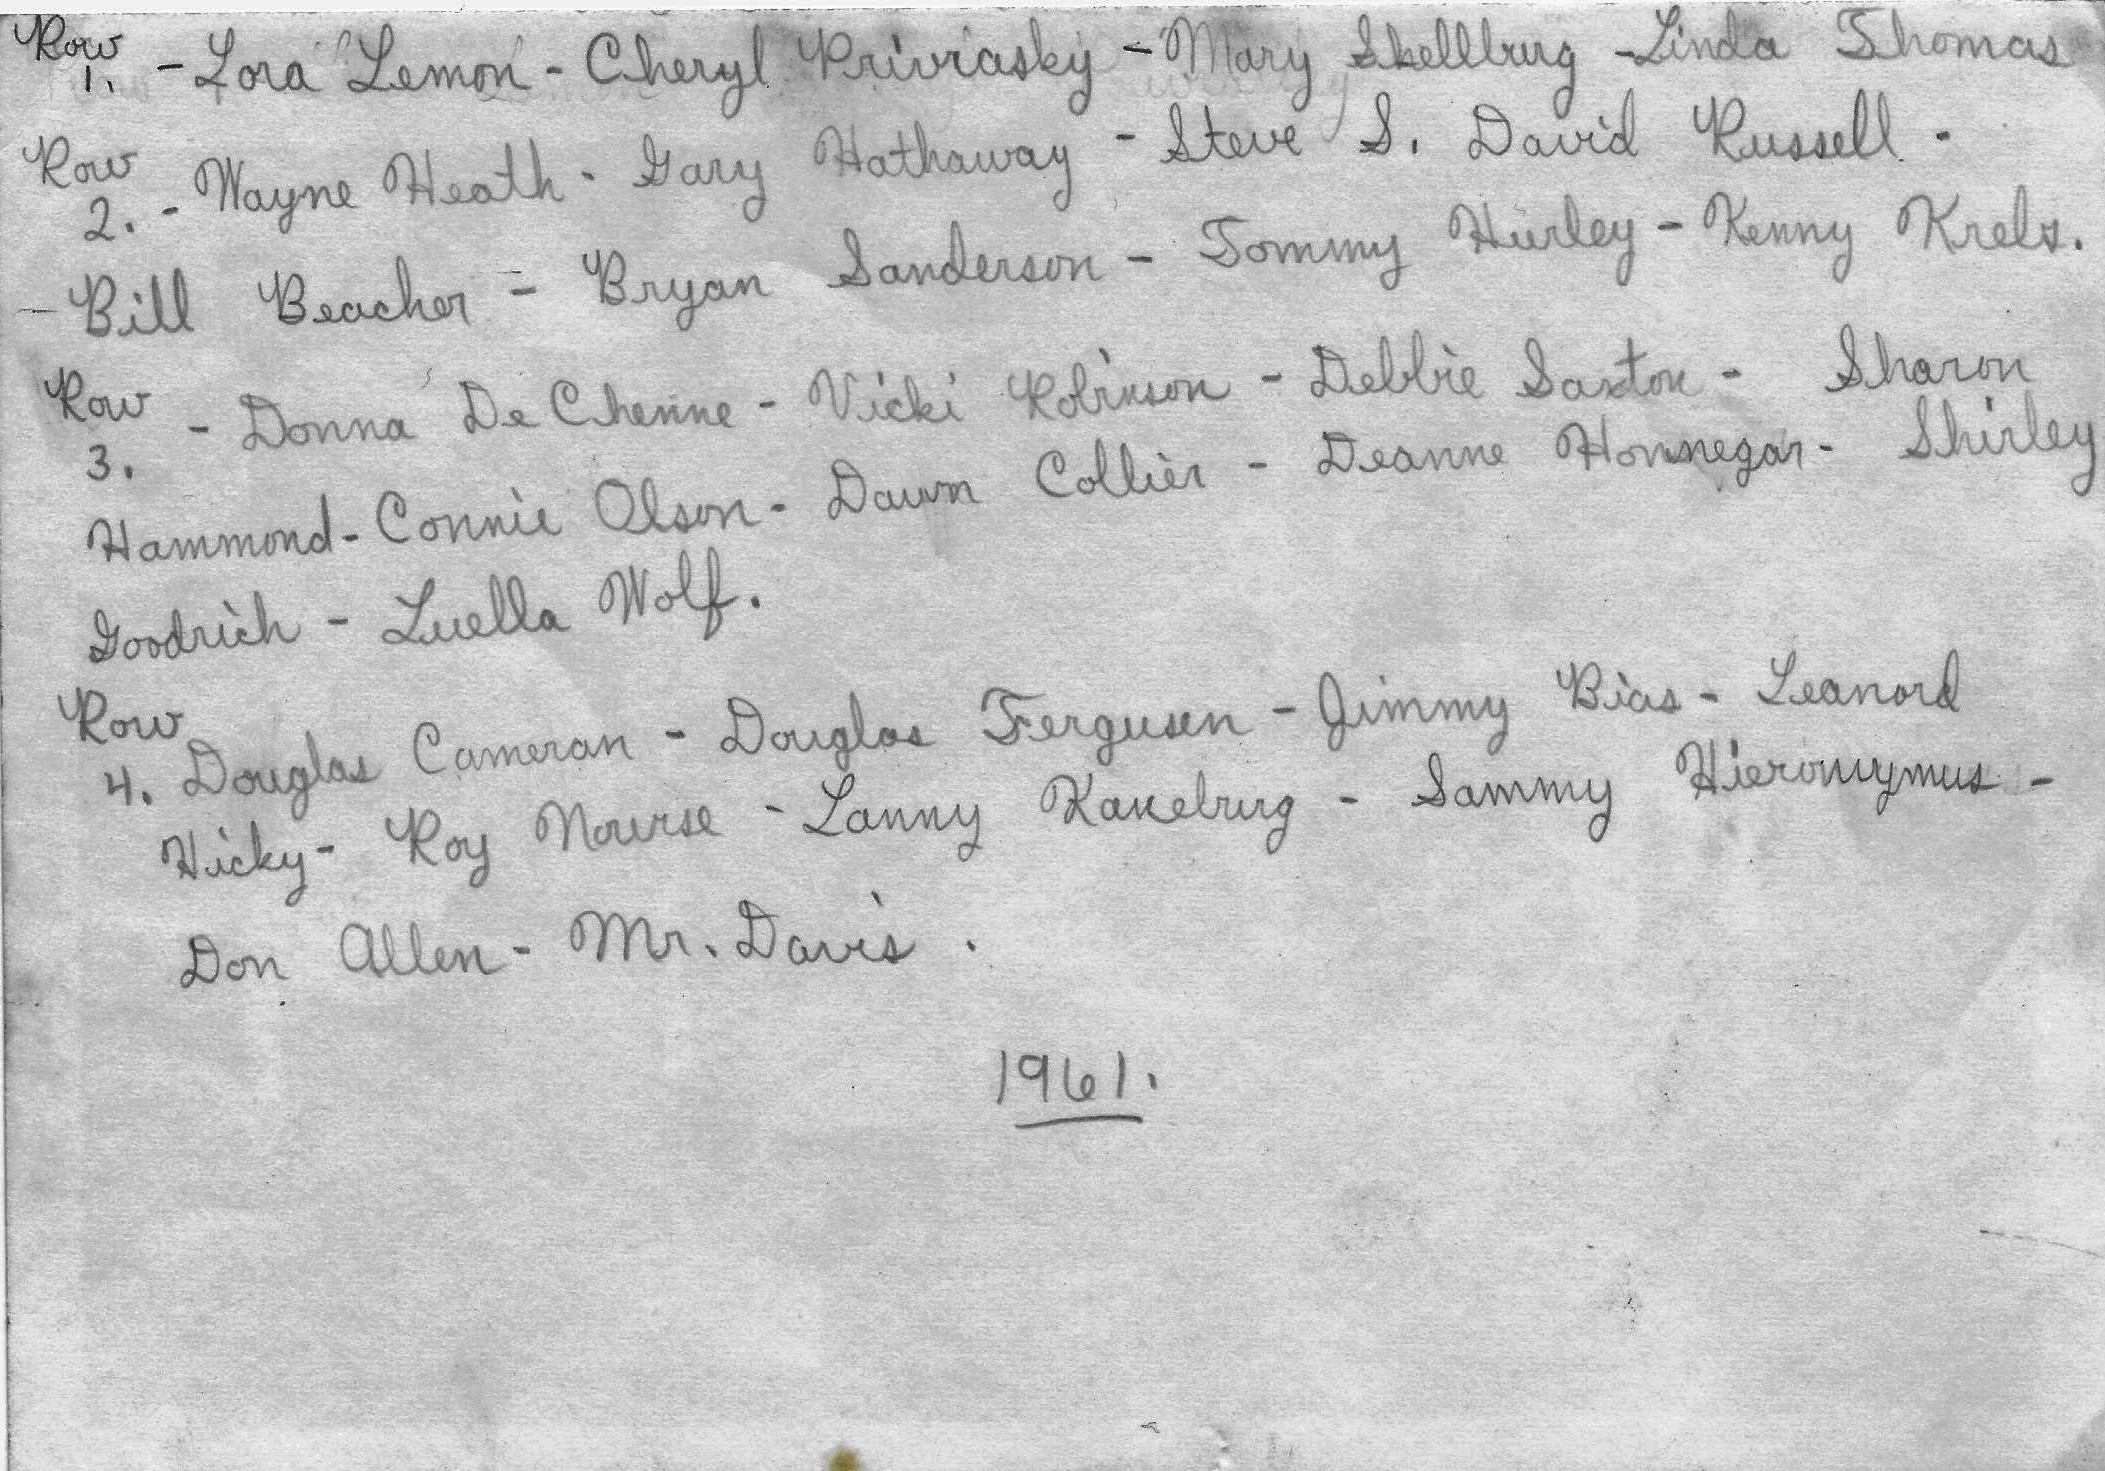 Row 1. - Lora Lemon - Cheryl Priviasky - Mary Skellburg - Linda Thomas
Row 2. - Wayne Heath - Gary Hathaway - Steve S. David Russell -
- Bill Beacher - Bryan Sanderson - Tommy Hurley - Kenny Krebs.
Row 3. - Donna De Chenne - Vicki Robinson - Debbie Saxton - Sharon
Hammond - Connie Olson - Dawn Collier - Deanne Honnegar - Shirley
Goodrich - Luella Wolf.
Row 4. Douglas Cameran - Douglas Fergusen - Jimmy Bias - Leanord
Hicky - Roy Nourse - Lanny Kaneburg - Sammy Hieronymus -
Don Allen - Mr. Davis .
1961.